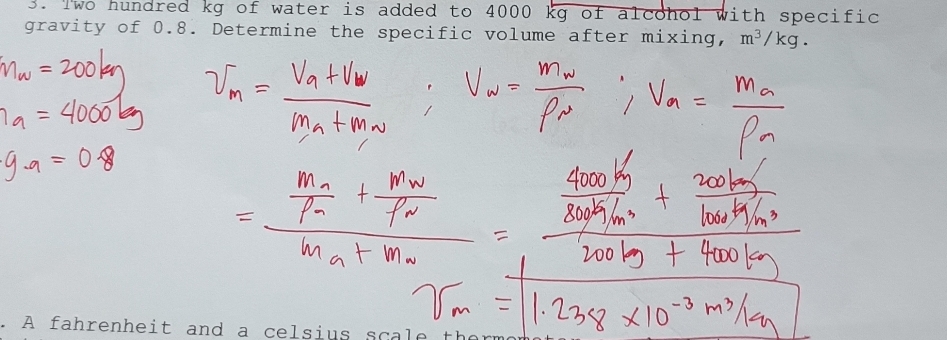 3. Two hundred kg of water is added to 4000 kg of alcohol with specific
gravity of 0.8. Determine the specific volume after mixing, m³/kg.
mw = 200kg
ma = 4000 kg
g.a = 0.8
vm = (Va + Vw) / (ma + mw) ; Vw = mw / ρw ; Va = ma / ρa
= (ma/ρa + mw/ρw) / (ma + mw) = (4000 kg / 800 kg/m³ + 200 kg / 1000 kg/m³) / (200 kg + 4000 kg)
vm = 1.238 × 10⁻³ m³/kg
. A fahrenheit and a celsius scale thermomet